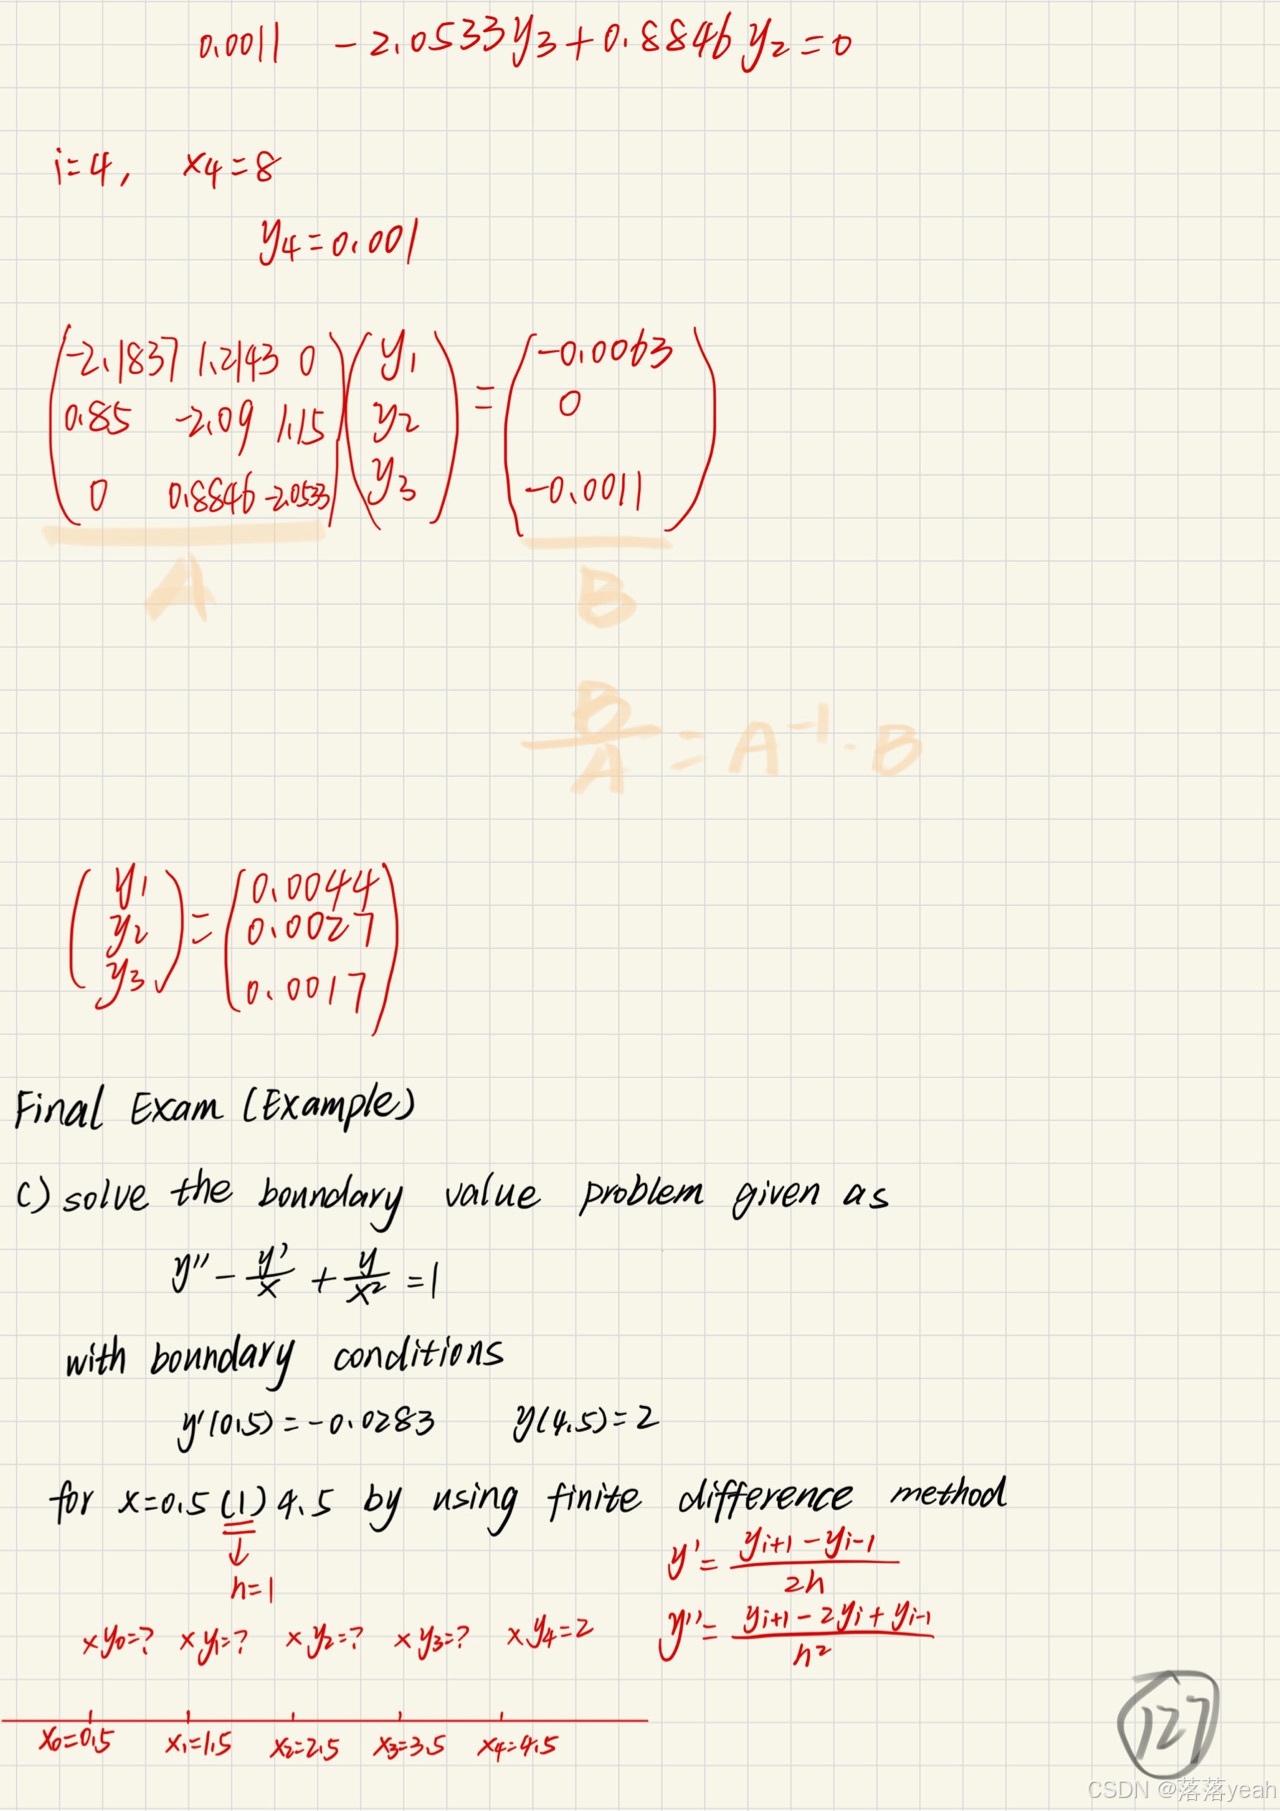 0.0011 -2.0533y₃+0.8846y₂=0
i=4, x₄=8
y₄=0.001
(-2.1837 1.2143 0) (y₁) = (-0.0063)
(0.85 -2.09 1.15) (y₂) (0)
(0 0.8846 -2.0533) (y₃) (-0.0011)
A B
B/A = A⁻¹·B
(y₁) = (0.0044)
(y₂) (0.0027)
(y₃) (0.0017)
Final Exam (Example)
c) solve the boundary value problem given as
y'' - y'/x + y/x² = 1
with boundary conditions
y'(0.5)=-0.0283 y(4.5)=2
for x=0.5(1)4.5 by using finite difference method
h=1
y' = (yᵢ₊₁ - yᵢ₋₁)/2h
y'' = (yᵢ₊₁ - 2yᵢ + yᵢ₋₁)/h²
xy₀=? xy₁=? xy₂=? xy₃=? xy₄=2
x₀=0.5 x₁=1.5 x₂=2.5 x₃=3.5 x₄=4.5
127
CSDN @落落yeah